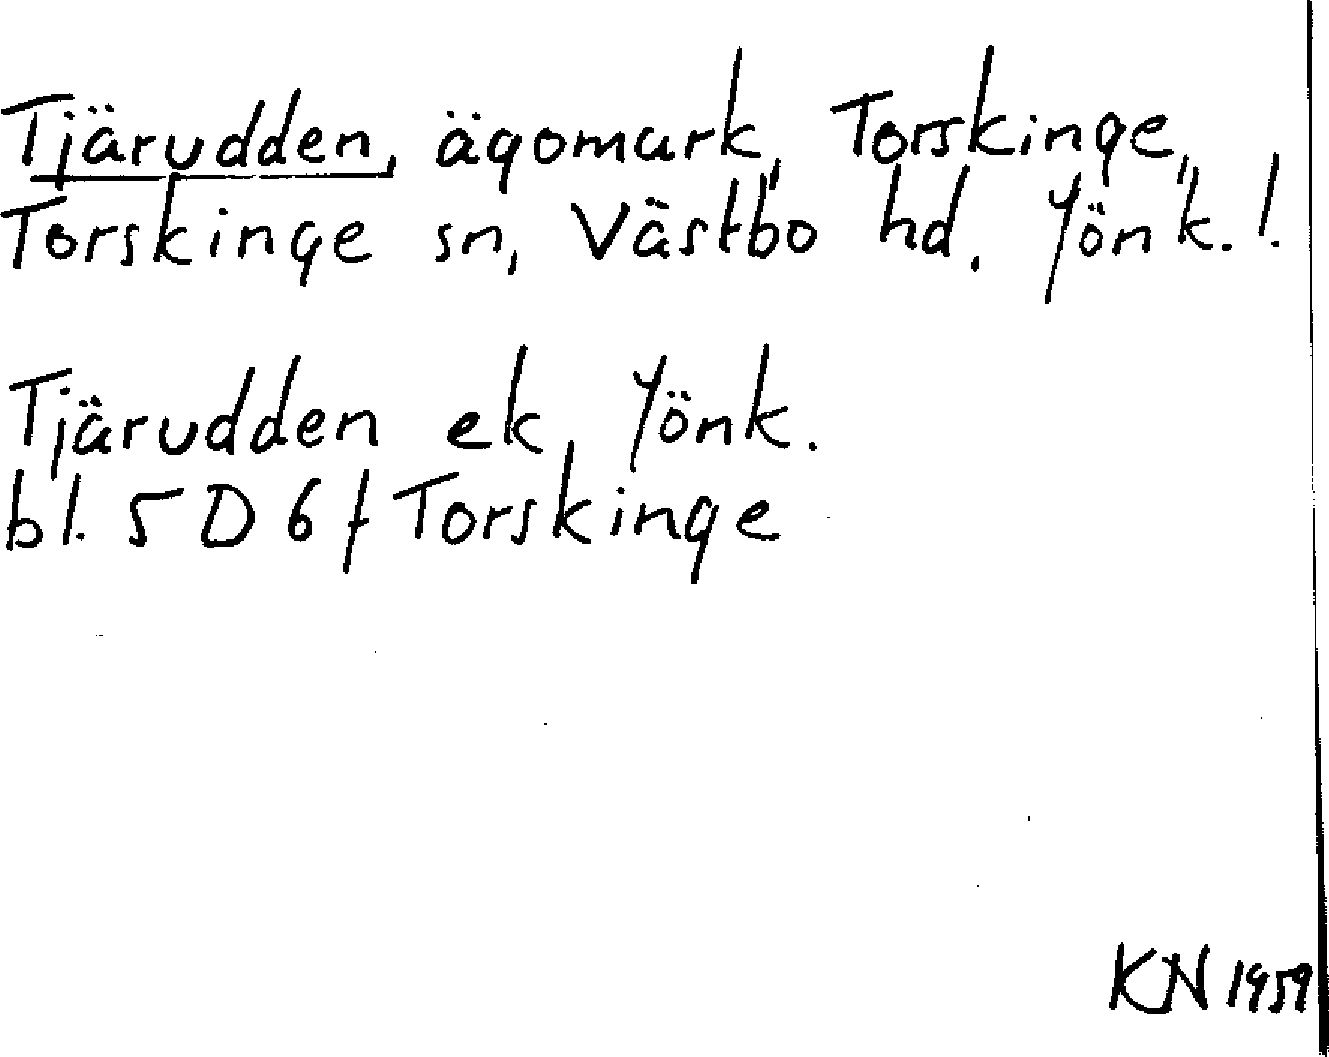 Tjärudden, ägomark, Torskinge,
Torskinge sn, Västbo hd. Jönk. l.
Tjärudden ek, Jönk.
bl. 5 D 6 f Torskinge
KN 1959